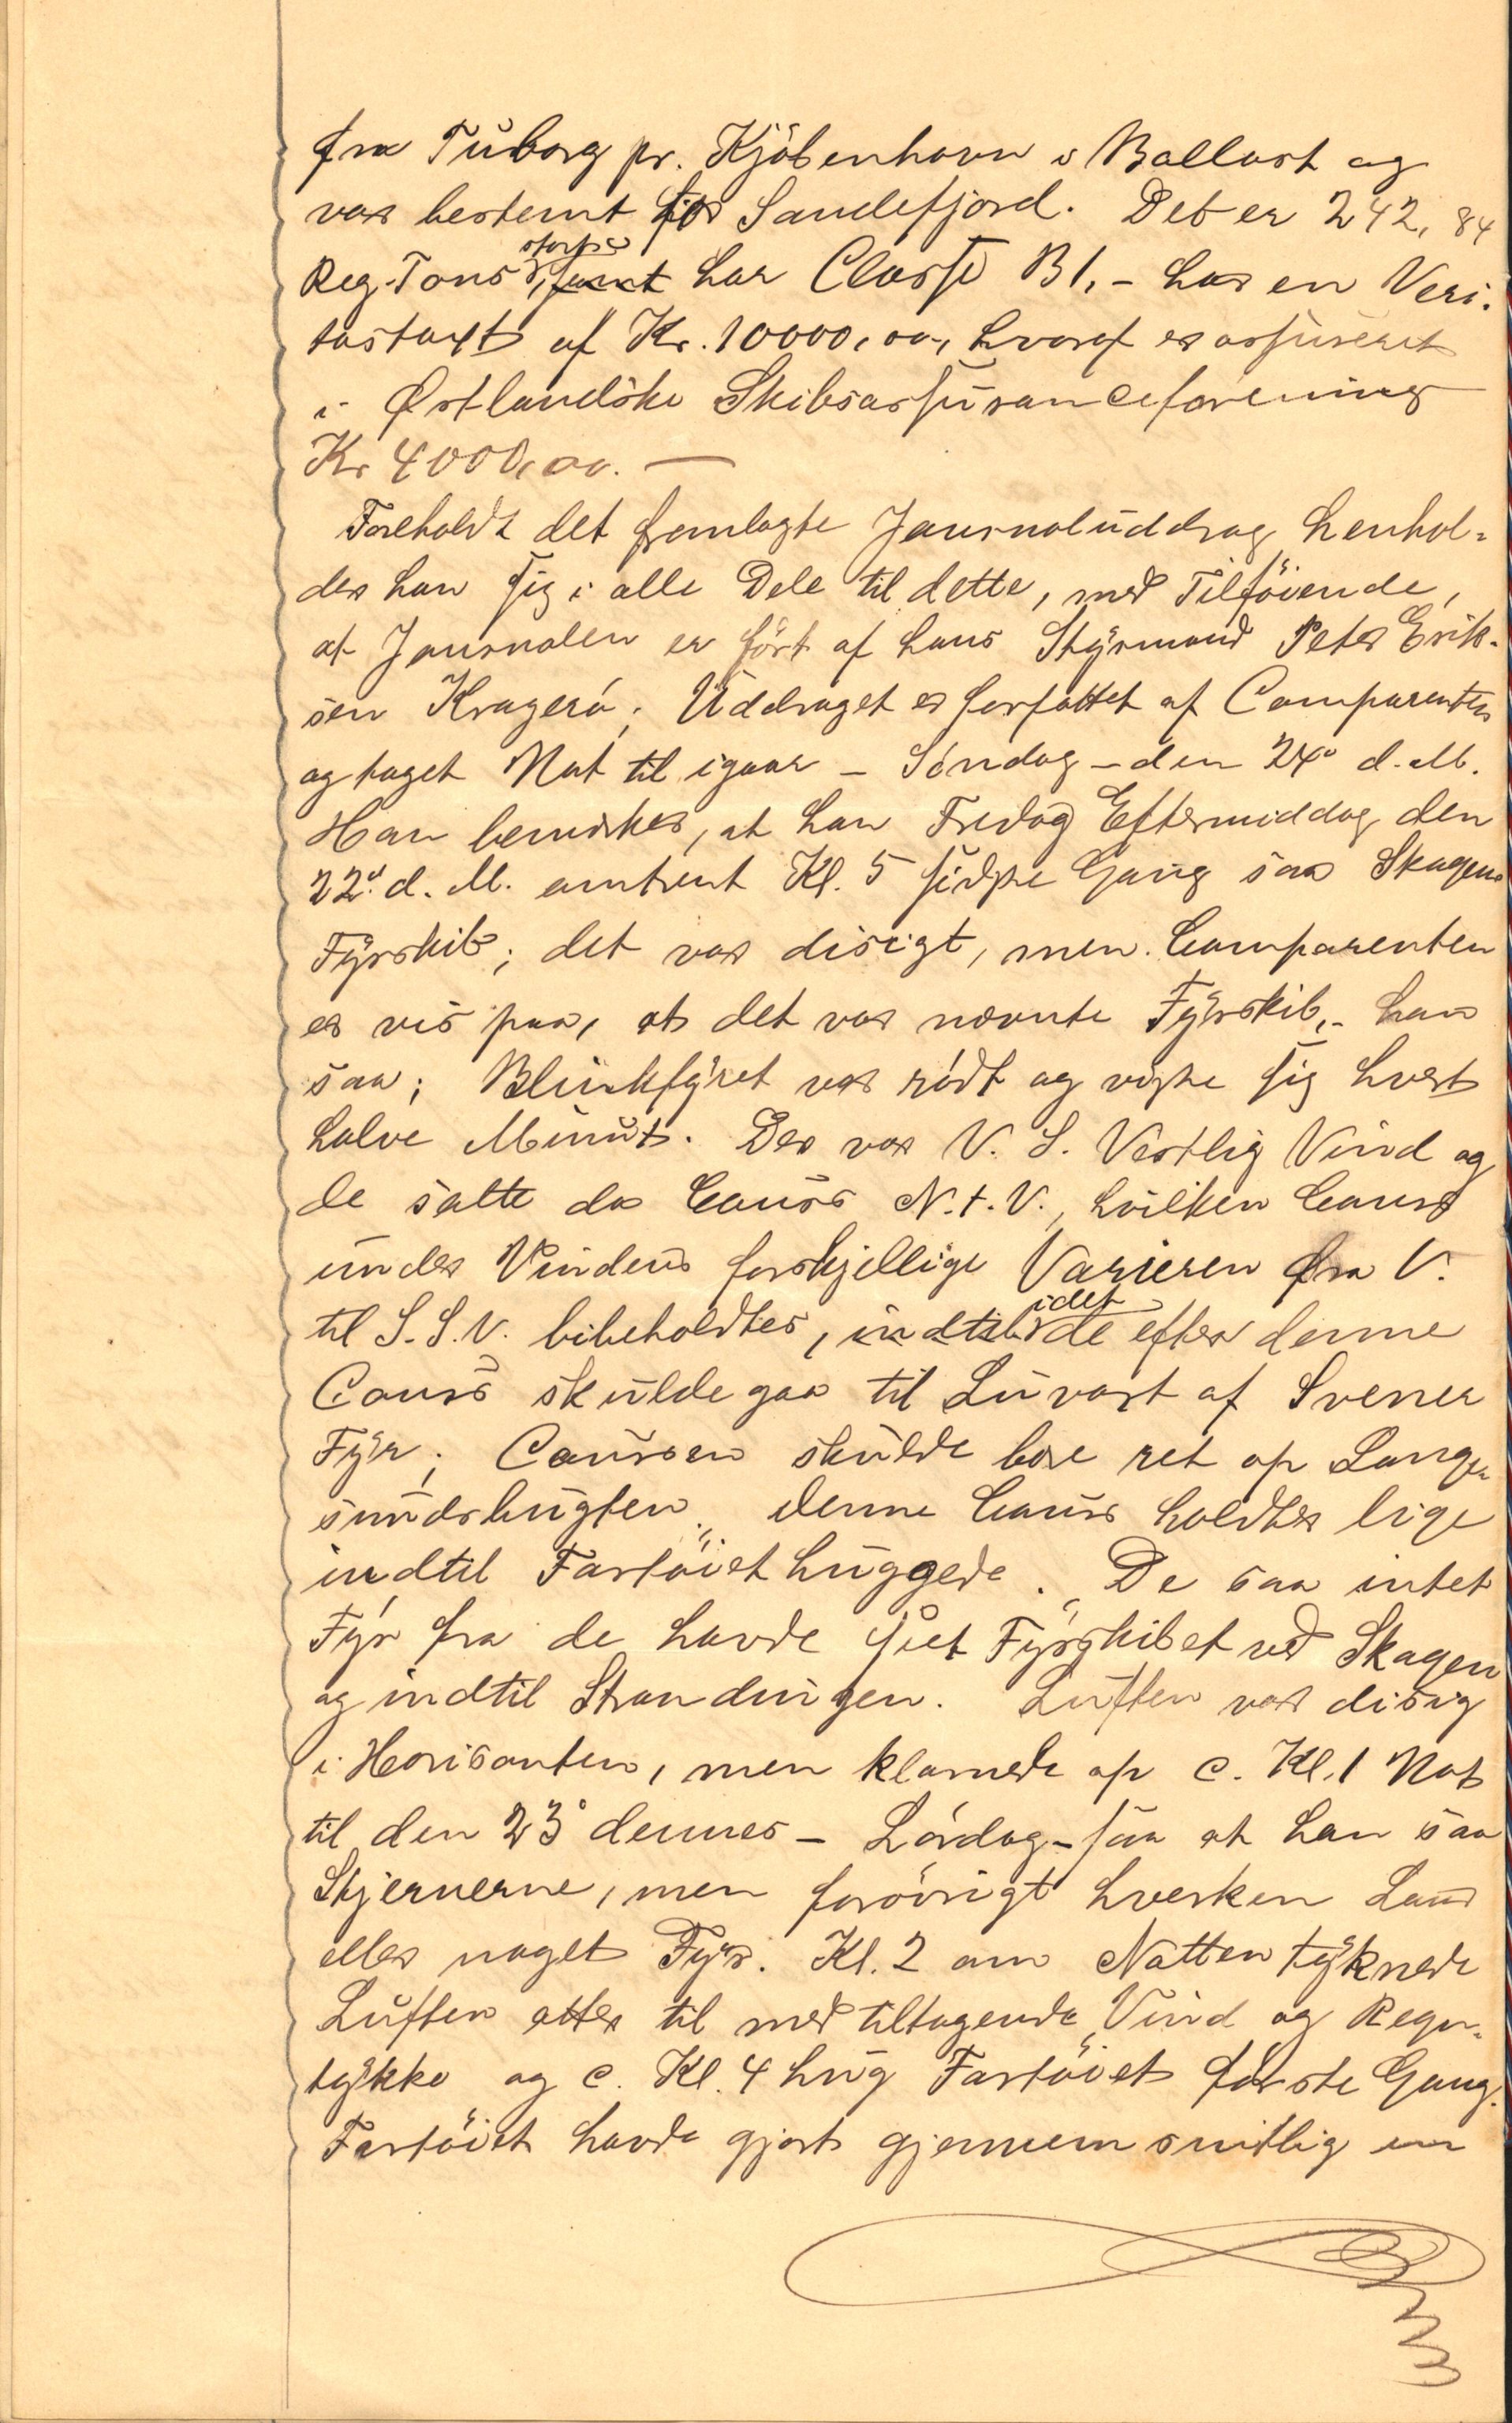 fra Tuborg pr. Kjøbenhavn i Ballast og
var bestemt til Sandefjord. Det er 242,84
Reg. Tons stort, samt har Classe B1, - har en Veri-
tastaxt af Kr. 10000,00, hvoraf er assureret
i Østlandske Skibsassuranceforening
Kr 4000,00. —
Foreholdt det fremlagte Journaluddrag henhol-
der han sig i alle Dele til dette, med Tilføiende,
at Journalen er ført af hans Styrmand Peter Erik-
sen Kragerø; Uddraget er forfattet af Comparenten
og taget Nat til igaar - Søndag - den 24° d.M.
Han bemærker, at han Fredag Eftermiddag den
22° d.M. omtrent Kl. 5 sidste Gang saa Skagens
Fyrskib; det var disigt, men Comparenten
er vis paa, at det var nævnte Fyrskib, - han
saa; Blinkfyret var rødt og viste sig hvert
halve Minut. Der var V.S. Vestlig Vind og
de satte da Cours N.t.V., hvilken Cours
under Vindens forskjellige Varieren fra V.
til S.S.V. bibeholdtes, indtil idet de efter denne
Cours skulde gaa til Luvart af Svenør
Fyr; Coursen skulde bære ret op Lange-
sundsbugten. Denne Cours holdtes lige
indtil Fartøiet huggede. De saa intet
Fyr fra de havde seet Fyrskibet ved Skagen
og indtil Strandingen. Luften var disig
i Horisonten, men klarnede op c. Kl. 1 Nat
til den 23° dennes - Lørdag - saa at han saa
Stjernerne, men forøvrigt hverken Land
eller noget Fyr. Kl. 2 om Natten tyknede
Luften atter til med tiltagende Vind og Regn-
tykke og c. Kl. 4 hug Fartøiet første Gang.
Fartøiet havde gjort gjennemsnitlig en